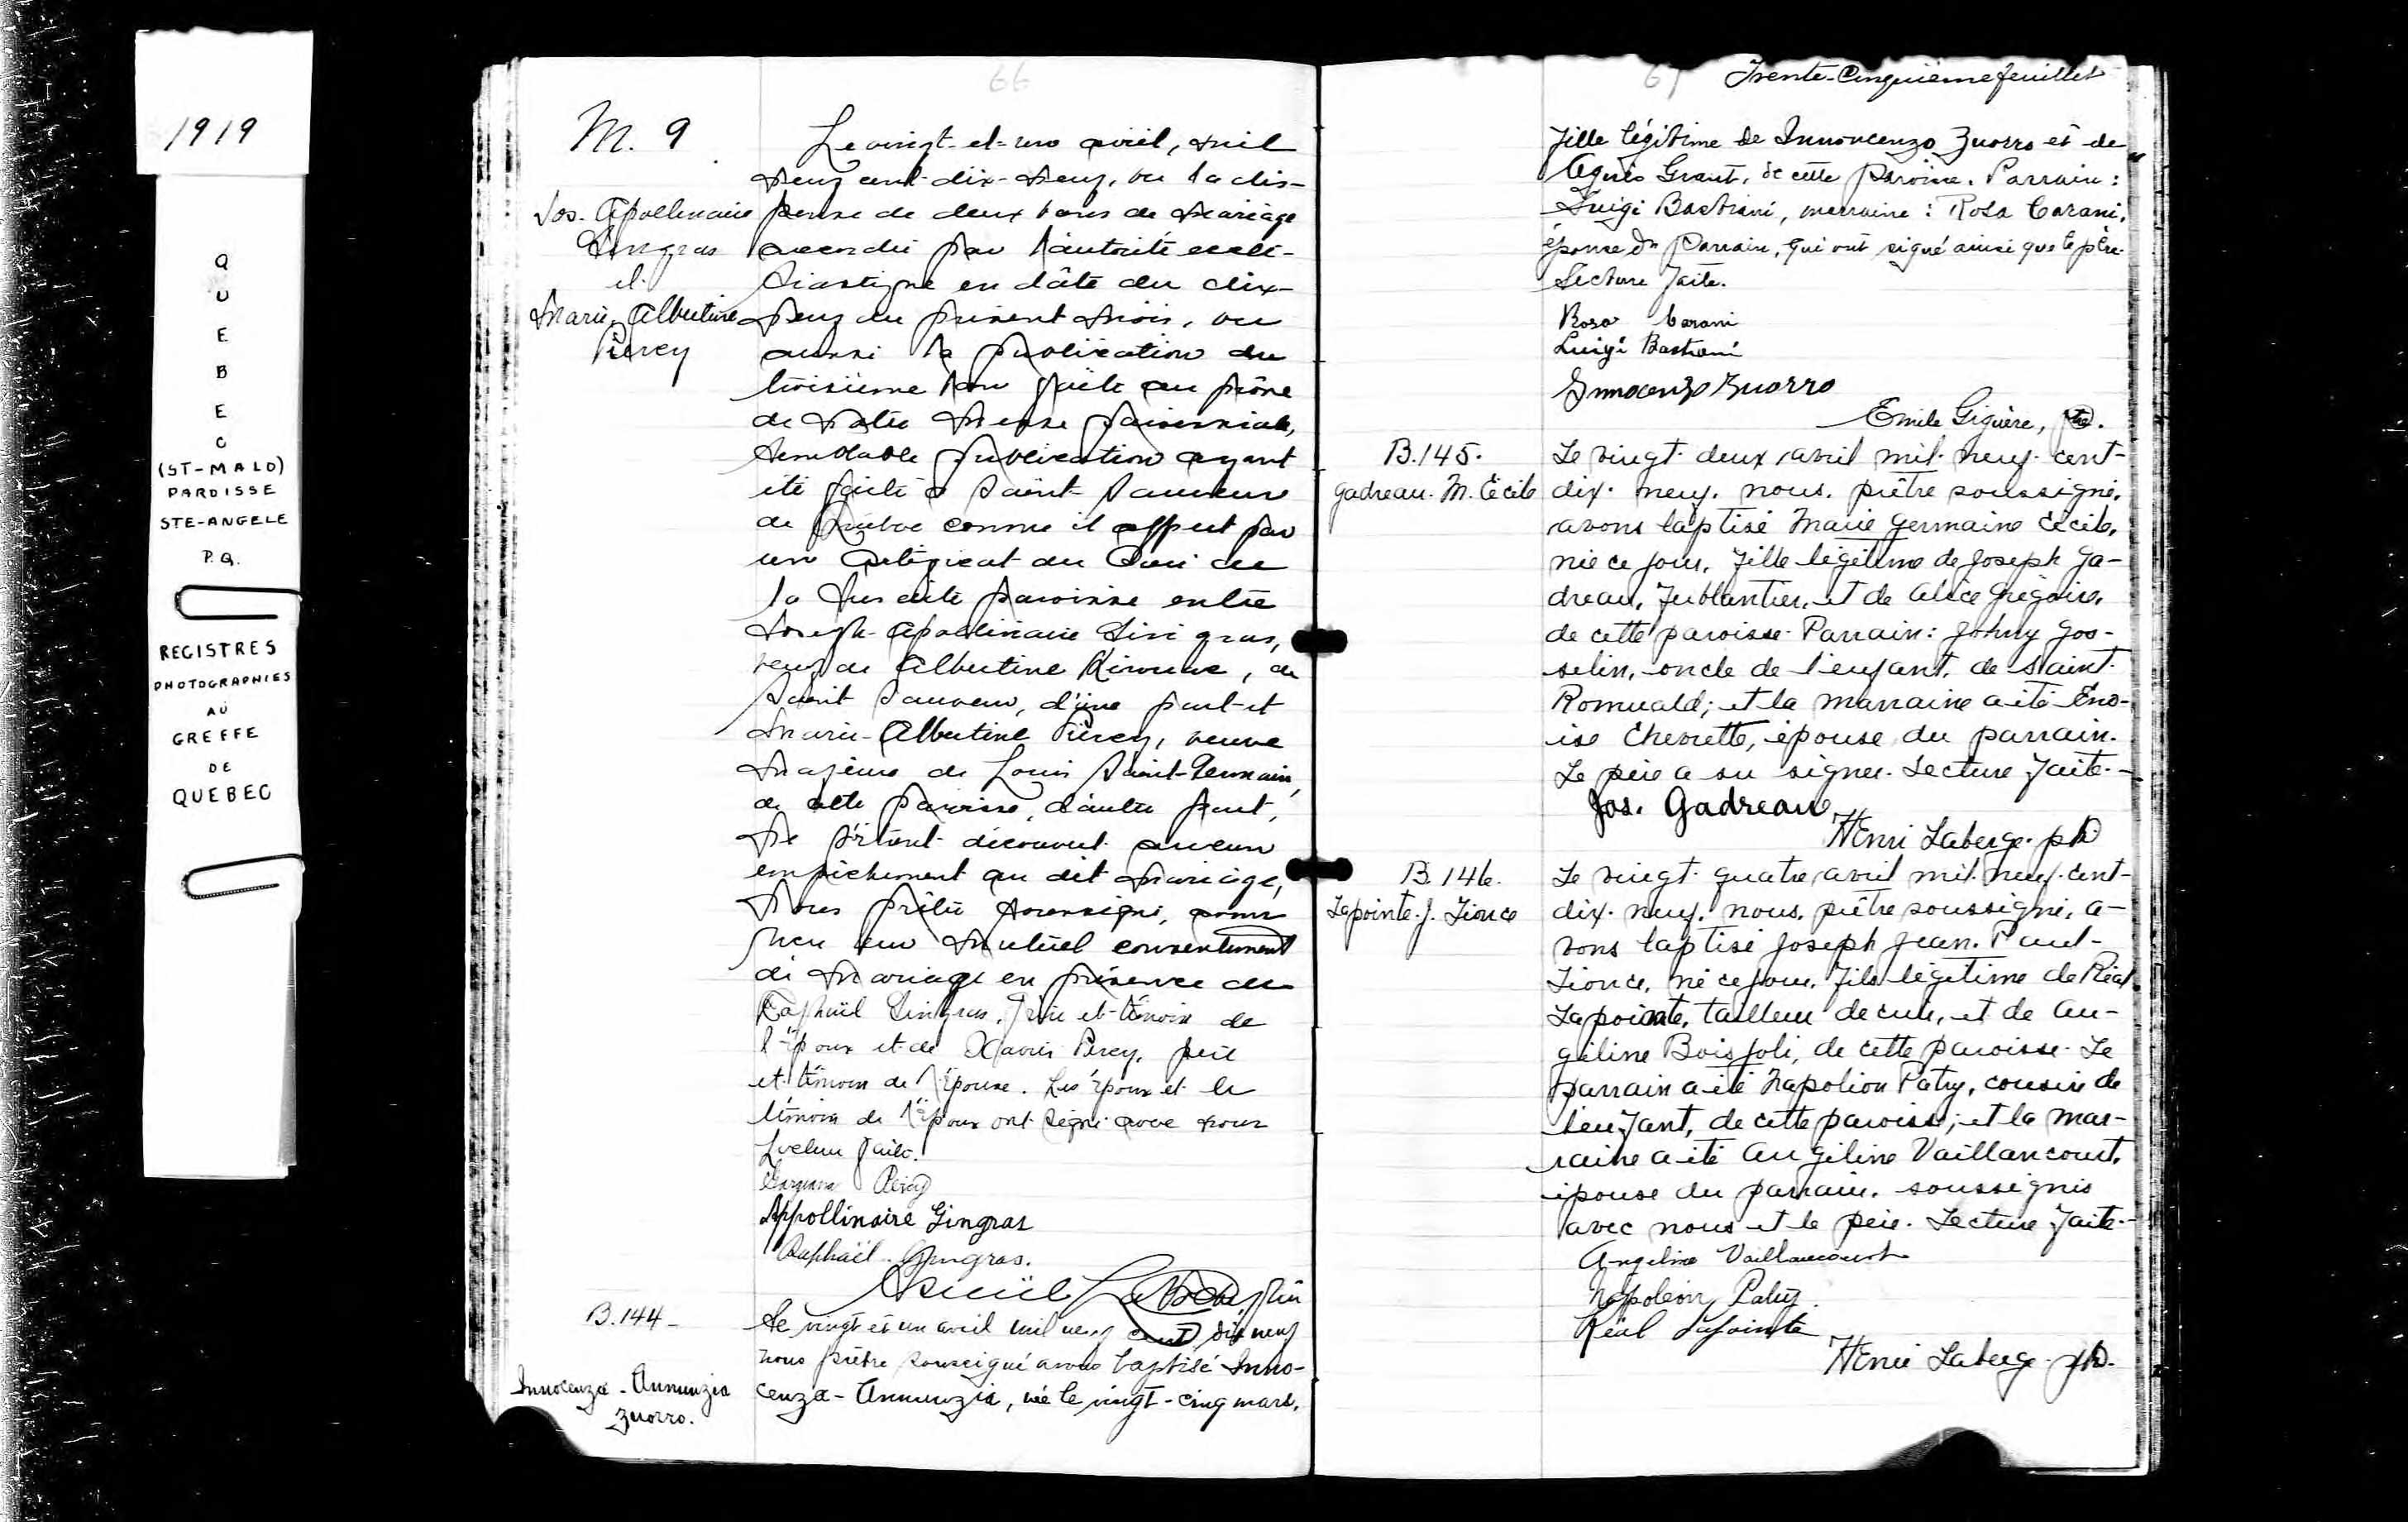 1919
QUEBEC
(ST-MALO)
PAROISSE
STE-ANGELE
P.Q.
REGISTRES
PHOTOGRAPHIES
AU
GREFFE
DE
QUEBEC
66
M. 9
Jos. Apollinaire
Gingras
et
Marie Albertine
Piercy
Le vingt-et-un avril, mil
neuf cent-dix-neuf, vu la dis-
pense de deux bans de mariage
accordée par l'autorité ecclé-
siastique en dâte du dix-
neuf du présent mois, vu
aussi la publication du
troisième ban faite au prône
de notre messe paroissiale,
semblable publication ayant
été faite à Saint-Sauveur
de Québec comme il appert par
un certificat du Curé de
la susdite paroisse entre
Joseph-Apollinaire Gingras,
veuf de Albertine Kirouac, de
Saint Sauveur, d'une part et
Marie-Albertine Piercy, veuve
majeure de Louis Saint-Germain,
de cette paroisse, d'autre part,
ne s'étant découvert aucun
empêchement au dit mariage,
Nous prêtre soussigné, avons
reçu leur mutuel consentement
de mariage en présence de
Raphaël Gingras, frère et témoin de
l'époux et de Xavier Percy, père
et témoin de l'épouse. Les époux et le
témoin de l'époux ont signé avec nous
Lecture faite.
Percy
Appollinaire Gingras
Raphaël Gingras.
ptre
B. 144-
Innocenza-Annunzia
Zuorro.
Le vingt et un avril mil neuf cent dix neuf
nous prêtre soussigné avons baptisé Inno-
cenza-Annunzia, née le vingt-cinq mars,
67 Trente-Cinquième feuillet
fille légitime de Innoncenzo Zuorro et de
Agnès Grant, de cette paroisse. Parrain:
Luigi Bastiani, marraine: Rosa Carani,
épouse du parrain, qui ont signé ainsi que le père.
Lecture faite.
Rosa Carani
Luigi Bastiani
Innocenzo Zuorro
Emile Giguère, ptre.
B. 145.
Gadreau. M. Cécile
Le vingt-deux avril mil-neuf-cent-
dix-neuf, nous, prêtre soussigné,
avons baptisé Marie Germaine Cécile,
née ce jour, fille légitime de Joseph Ga-
dreau, ferblantier, et de Alice Grégoire,
de cette paroisse. Parrain: Johny Gos-
selin, oncle de l'enfant, de Saint-
Romuald; et la marraine a été Éno-
ise Chevrette, épouse du parrain.
Le père a su signer. Lecture faite.-
Jos. Gadreau
Henri Laberge. ptr
B. 146.
Lapointe. J. Lionce
Le vingt-quatre avril mil-neuf-cent-
dix-neuf, nous, prêtre soussigné, a-
vons baptisé Joseph Jean-Paul-
Lionce, né ce jour, fils légitime de Réal
Lapointe, tailleur de cuir, et de An-
géline Boisjoli, de cette paroisse. Le
parrain a été Napoléon Patry, cousin de
l'enfant, de cette paroisse; et la mar-
raine a été Angéline Vaillancourt,
épouse du parrain, soussignés
avec nous et le père. Lecture faite.-
Angelina Vaillancourt
Napoléon Patry.
Réal Lapointe
Henri Laberge. ptr.